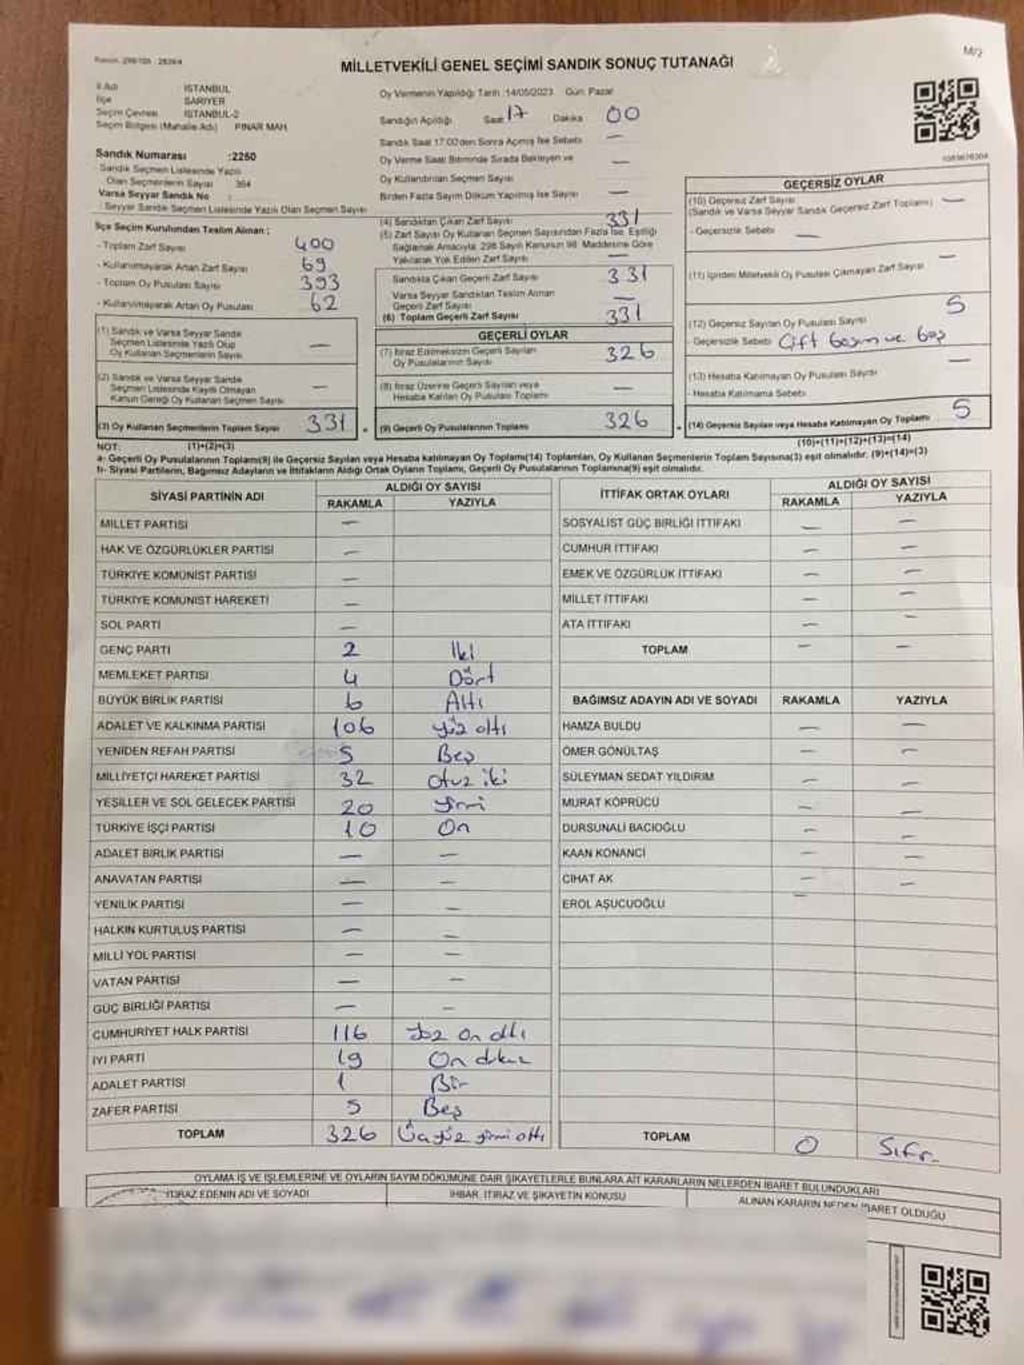 M/2
MİLLETVEKİLİ GENEL SEÇİMİ SANDIK SONUÇ TUTANAĞI
İl Adı İSTANBUL
İlçe SARIYER
Seçim Çevresi İSTANBUL-2
Seçim Bölgesi (Mahalle Adı) PINAR MAH.
Sandık Numarası :2250
Sandık Seçmen Listesinde Yazılı
Olan Seçmenlerin Sayısı 364
Varsa Seyyar Sandık No :
Seyyar Sandık Seçmen Listesinde Yazılı Olan Seçmen Sayısı
İlçe Seçim Kurulundan Teslim Alınan ;
- Toplam Zarf Sayısı 400
- Kullanılmayarak Artan Zarf Sayısı 69
- Toplam Oy Pusulası Sayısı 393
- Kullanılmayarak Artan Oy Pusulası 62
(1) Sandık ve Varsa Seyyar Sandık
Seçmen Listesinde Yazılı Olup
Oy Kullanan Seçmenlerin Sayısı —
(2) Sandık ve Varsa Seyyar Sandık
Seçmen Listesinde Kayıtlı Olmayan
Kanun Gereği Oy Kullanan Seçmen Sayısı —
(3) Oy Kullanan Seçmenlerin Toplam Sayısı 331
Oy Vermenin Yapıldığı Tarih :14/05/2023 Gün: Pazar
Sandığın Açıldığı Saat 17 Dakika 00
Sandık Saat 17:00'den Sonra Açılmış İse Sebebi —
Oy Verme Saati Bitiminde Sırada Bekleyen ve —
Oy Kullandırılan Seçmen Sayısı
Birden Fazla Sayım Döküm Yapılmış İse Sayısı —
(4) Sandıktan Çıkan Zarf Sayısı 331
(5) Zarf Sayısı Oy Kullanan Seçmen Sayısından Fazla İse, Eşitliği
Sağlamak Amacıyla, 298 Sayılı Kanunun 98. Maddesine Göre
Yakılarak Yok Edilen Zarf Sayısı —
Sandıkta Çıkan Geçerli Zarf Sayısı 331
Varsa Seyyar Sandıktan Teslim Alınan
Geçerli Zarf Sayısı —
(6) Toplam Geçerli Zarf Sayısı 331
GEÇERLİ OYLAR
(7) İtiraz Edilmeksizin Geçerli Sayılan
Oy Pusulalarının Sayısı 326
(8) İtiraz Üzerine Geçerli Sayılan veya
Hesaba Katılan Oy Pusulası Toplamı —
(9) Geçerli Oy Pusulalarının Toplamı 326
GEÇERSİZ OYLAR
(10) Geçersiz Zarf Sayısı
(Sandık ve Varsa Seyyar Sandık Geçersiz Zarf Toplamı) —
- Geçersizlik Sebebi —
(11) İçinden Milletvekili Oy Pusulası Çıkmayan Zarf Sayısı —
(12) Geçersiz Sayılan Oy Pusulası Sayısı 5
- Geçersizlik Sebebi Çift basım ve boş
(13) Hesaba Katılmayan Oy Pusulası Sayısı —
- Hesaba Katılmama Sebebi
(14) Geçersiz Sayılan veya Hesaba Katılmayan Oy Toplamı 5
NOT: (1)+(2)=(3) (10)+(11)+(12)+(13)=(14)
a- Geçerli Oy Pusulalarının Toplamı(9) ile Geçersiz Sayılan veya Hesaba katılmayan Oy Toplamı(14) Toplamları, Oy Kullanan Seçmenlerin Toplam Sayısına(3) eşit olmalıdır. (9)+(14)=(3)
b- Siyasi Partilerin, Bağımsız Adayların ve İttifakların Aldığı Ortak Oyların Toplamı, Geçerli Oy Pusulalarının Toplamına(9) eşit olmalıdır.
SİYASİ PARTİNİN ADI ALDIĞI OY SAYISI
RAKAMLA YAZIYLA
MİLLET PARTİSİ —
HAK VE ÖZGÜRLÜKLER PARTİSİ —
TÜRKİYE KOMÜNİST PARTİSİ —
TÜRKİYE KOMÜNİST HAREKETİ —
SOL PARTİ —
GENÇ PARTİ 2 İki
MEMLEKET PARTİSİ 4 Dört
BÜYÜK BİRLİK PARTİSİ 6 Altı
ADALET VE KALKINMA PARTİSİ 106 yüz altı
YENİDEN REFAH PARTİSİ 5 Beş
MİLLİYETÇİ HAREKET PARTİSİ 32 Otuz iki
YEŞİLLER VE SOL GELECEK PARTİSİ 20 yirmi
TÜRKİYE İŞÇİ PARTİSİ 10 On
ADALET BİRLİK PARTİSİ — —
ANAVATAN PARTİSİ — —
YENİLİK PARTİSİ — —
HALKIN KURTULUŞ PARTİSİ — —
MİLLİ YOL PARTİSİ — —
VATAN PARTİSİ — —
GÜÇ BİRLİĞİ PARTİSİ — —
CUMHURİYET HALK PARTİSİ 116 Yüz on altı
İYİ PARTİ 19 On dokuz
ADALET PARTİSİ 1 Bir
ZAFER PARTİSİ 5 Beş
TOPLAM 326 Üçyüz yirmi altı
İTTİFAK ORTAK OYLARI ALDIĞI OY SAYISI
RAKAMLA YAZIYLA
SOSYALİST GÜÇ BİRLİĞİ İTTİFAKI — —
CUMHUR İTTİFAKI — —
EMEK VE ÖZGÜRLÜK İTTİFAKI — —
MİLLET İTTİFAKI — —
ATA İTTİFAKI — —
TOPLAM — —
BAĞIMSIZ ADAYIN ADI VE SOYADI RAKAMLA YAZIYLA
HAMZA BULDU — —
ÖMER GÖNÜLTAŞ — —
SÜLEYMAN SEDAT YILDIRIM — —
MURAT KÖPRÜCÜ — —
DURSUNALİ BACIOĞLU — —
KAAN KONANCI — —
CİHAT AK — —
EROL AŞUCUOĞLU —
TOPLAM 0 Sıfır
OYLAMA İŞ VE İŞLEMLERİNE VE OYLARIN SAYIM DÖKÜMÜNE DAİR ŞİKAYETLERLE BUNLARA AİT KARARLARIN NELERDEN İBARET BULUNDUKLARI
İTİRAZ EDENİN ADI VE SOYADI İHBAR, İTİRAZ VE ŞİKAYETİN KONUSU ALINAN KARARIN NEDEN İBARET OLDUĞU